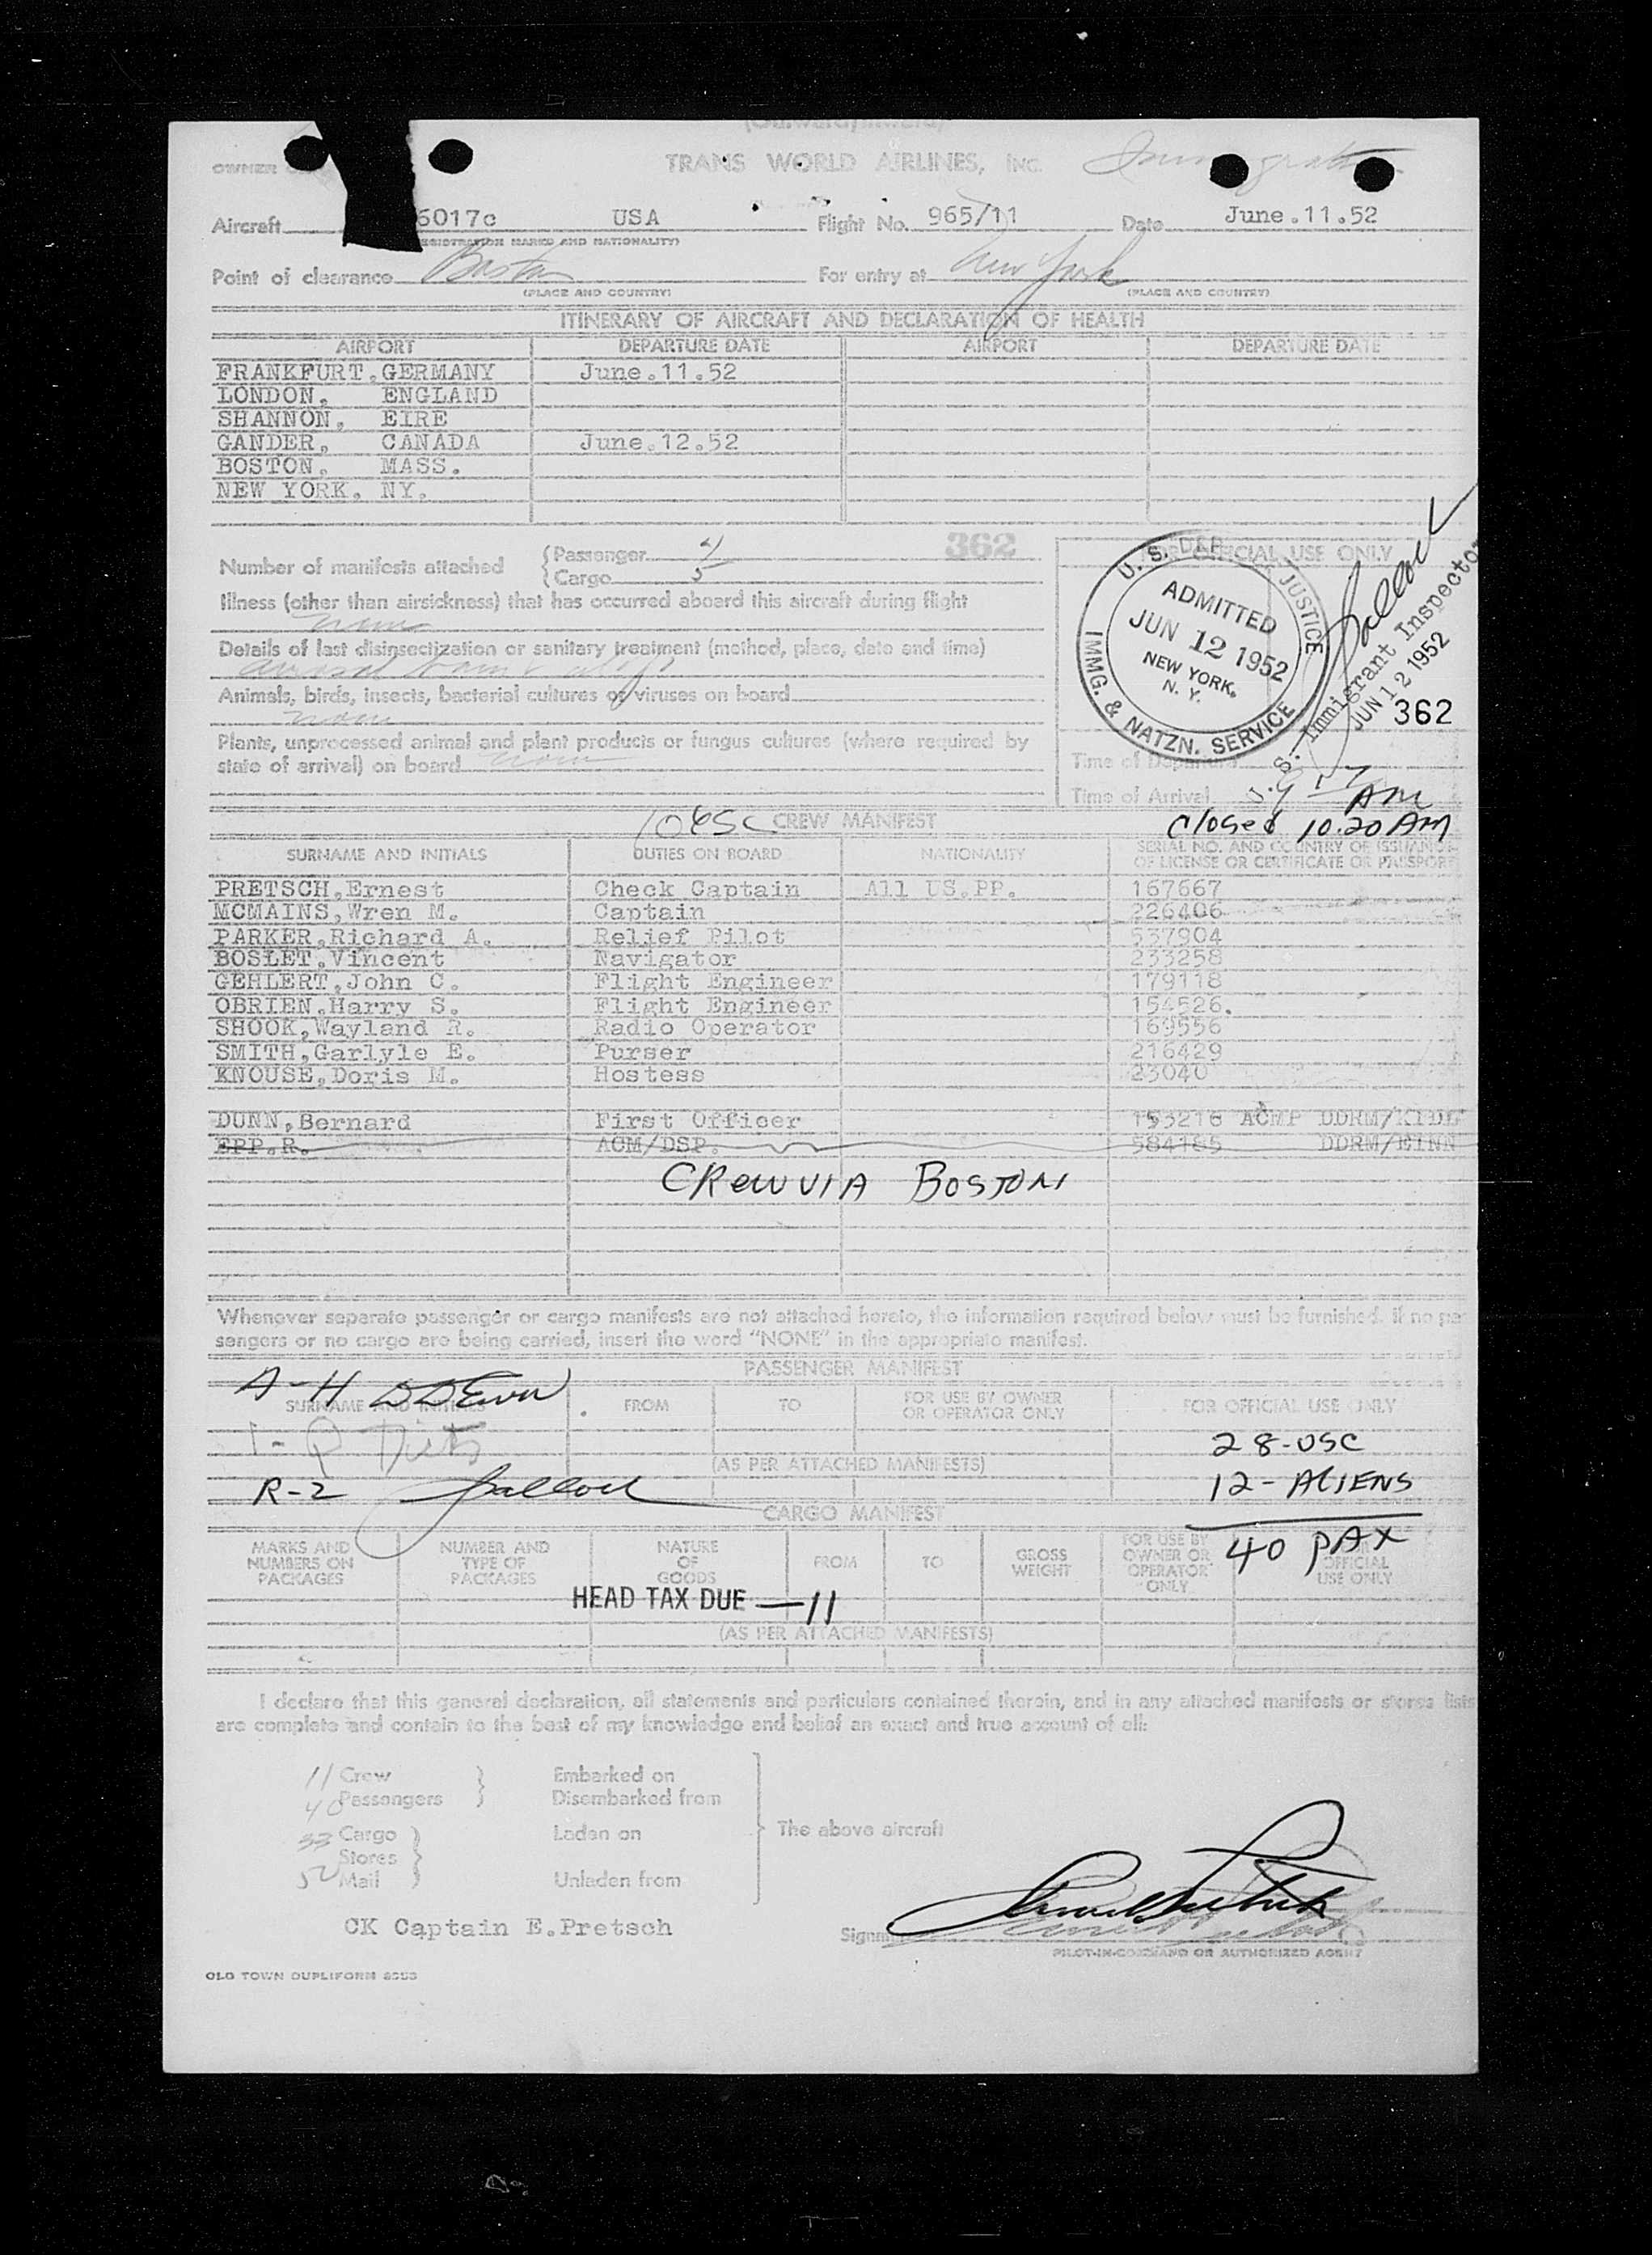 (Outward/Inward)
OWNER TRANS WORLD AIRLINES, INC.
Aircraft 6017c USA Flight No. 965/11 Date June.11.52
(REGISTRATION MARKS AND NATIONALITY)
Point of clearance Boston For entry at New York
(PLACE AND COUNTRY) (PLACE AND COUNTRY)
ITINERARY OF AIRCRAFT AND DECLARATION OF HEALTH
AIRPORT DEPARTURE DATE AIRPORT DEPARTURE DATE
FRANKFURT.GERMANY June.11.52
LONDON, ENGLAND
SHANNON, EIRE
GANDER, CANADA June.12.52
BOSTON. MASS.
NEW YORK. NY.
362
Number of manifests attached
Passenger 4
Cargo 5
Illness (other than airsickness) that has occurred aboard this aircraft during flight
none
Details of last disinsectization or sanitary treatment (method, place, date and time)
Animals, birds, insects, bacterial cultures or viruses on board
none
Plants, unprocessed animal and plant products or fungus cultures (where required by
state of arrival) on board none
FOR OFFICIAL USE ONLY
U. S. DEP. JUSTICE
ADMITTED
JUN 12 1952
NEW YORK,
N. Y.
IMMG. & NATZN. SERVICE
U.S. Immigrant Inspector
JUN 12 1952
362
Time of Departure
Time of Arrival AM
Closed 10.20 AM
10 USC CREW MANIFEST
SURNAME AND INITIALS DUTIES ON BOARD NATIONALITY SERIAL NO. AND COUNTRY OF ISSUANCE
OF LICENSE OR CERTIFICATE OR PASSPORT
PRETSCH,Ernest Check Captain All US.PP. 167667
MCMAINS,Wren M. Captain 226406
PARKER,Richard A. Relief Pilot 537904
BOSLET.Vincent Navigator 233258
GEHLERT,John C. Flight Engineer 179118
OBRIEN,Harry S. Flight Engineer 154526.
SHOOK,Wayland R. Radio Operator 169556
SMITH,Garlyle E. Purser 216429
KNOUSE,Doris M. Hostess 23040
DUNN,Bernard First Officer 153216 ACMP DDRM/KIDL
EPP.R. ACM/DSP. 584185 DDRM/EINN
CREW VIA BOSTON
Whenever separate passenger or cargo manifests are not attached hereto, the information required below must be furnished. If no pa
sengers or no cargo are being carried, insert the word "NONE" in the appropriate manifest.
PASSENGER MANIFEST
A-H
SURNAME AND INITIALS FROM TO FOR USE BY OWNER
OR OPERATOR ONLY FOR OFFICIAL USE ONLY
28-USC
(AS PER ATTACHED MANIFESTS)
R-2 12-ALIENS
40 PAX
CARGO MANIFEST
MARKS AND
NUMBERS ON
PACKAGES NUMBER AND
TYPE OF
PACKAGES NATURE
OF
GOODS FROM TO GROSS
WEIGHT FOR USE BY
OWNER OR
OPERATOR
ONLY OFFICIAL
USE ONLY
HEAD TAX DUE —11
(AS PER ATTACHED MANIFESTS)
I declare that this general declaration, all statements and particulars contained therein, and in any attached manifests or stores lists
are complete and contain to the best of my knowledge and belief an exact and true account of all:
11 Crew Embarked on
40 Passengers Disembarked from
Cargo Laden on The above aircraft
Stores
Mail Unladen from
CK Captain E.Pretsch
PILOT-IN-COMMAND OR AUTHORIZED AGENT
OLD TOWN DUPLIFORM